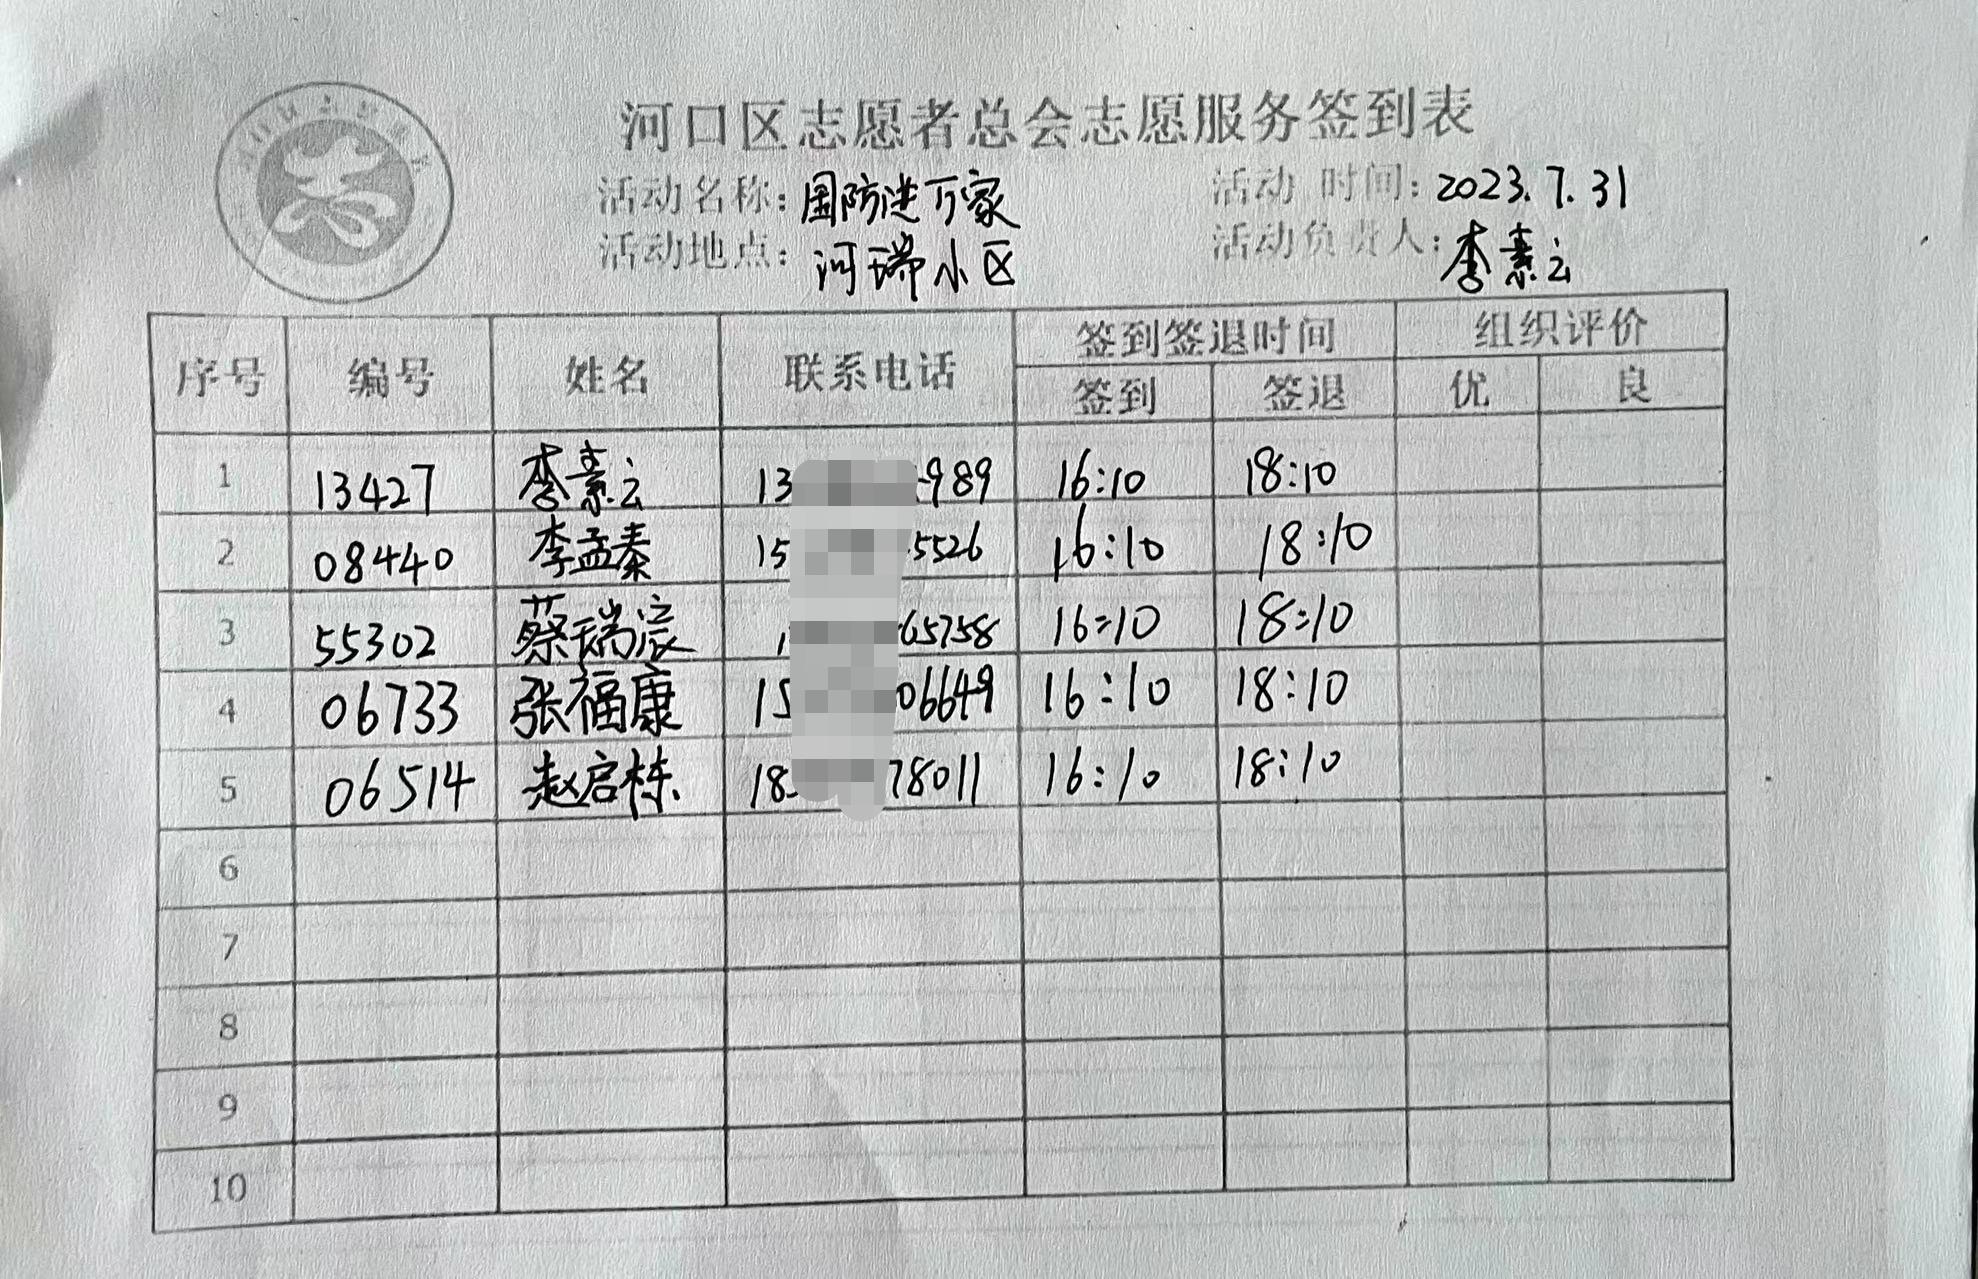 河口区志愿者总会志愿服务签到表
活动名称：国防进万家 活动 时间：2023.7.31
活动地点：河瑞小区 活动负责人：李素云
序号 编号 姓名 联系电话 签到签退时间 组织评价
签到 签退 优 良
1 13427 李素云 13 989 16:10 18:10
2 08440 李孟秦 15 5526 16:10 18:10
3 55302 蔡瑞宸 1 65758 16:10 18:10
4 06733 张福康 15 06649 16:10 18:10
5 06514 赵启栋 18 78011 16:10 18:10
6
7
8
9
10